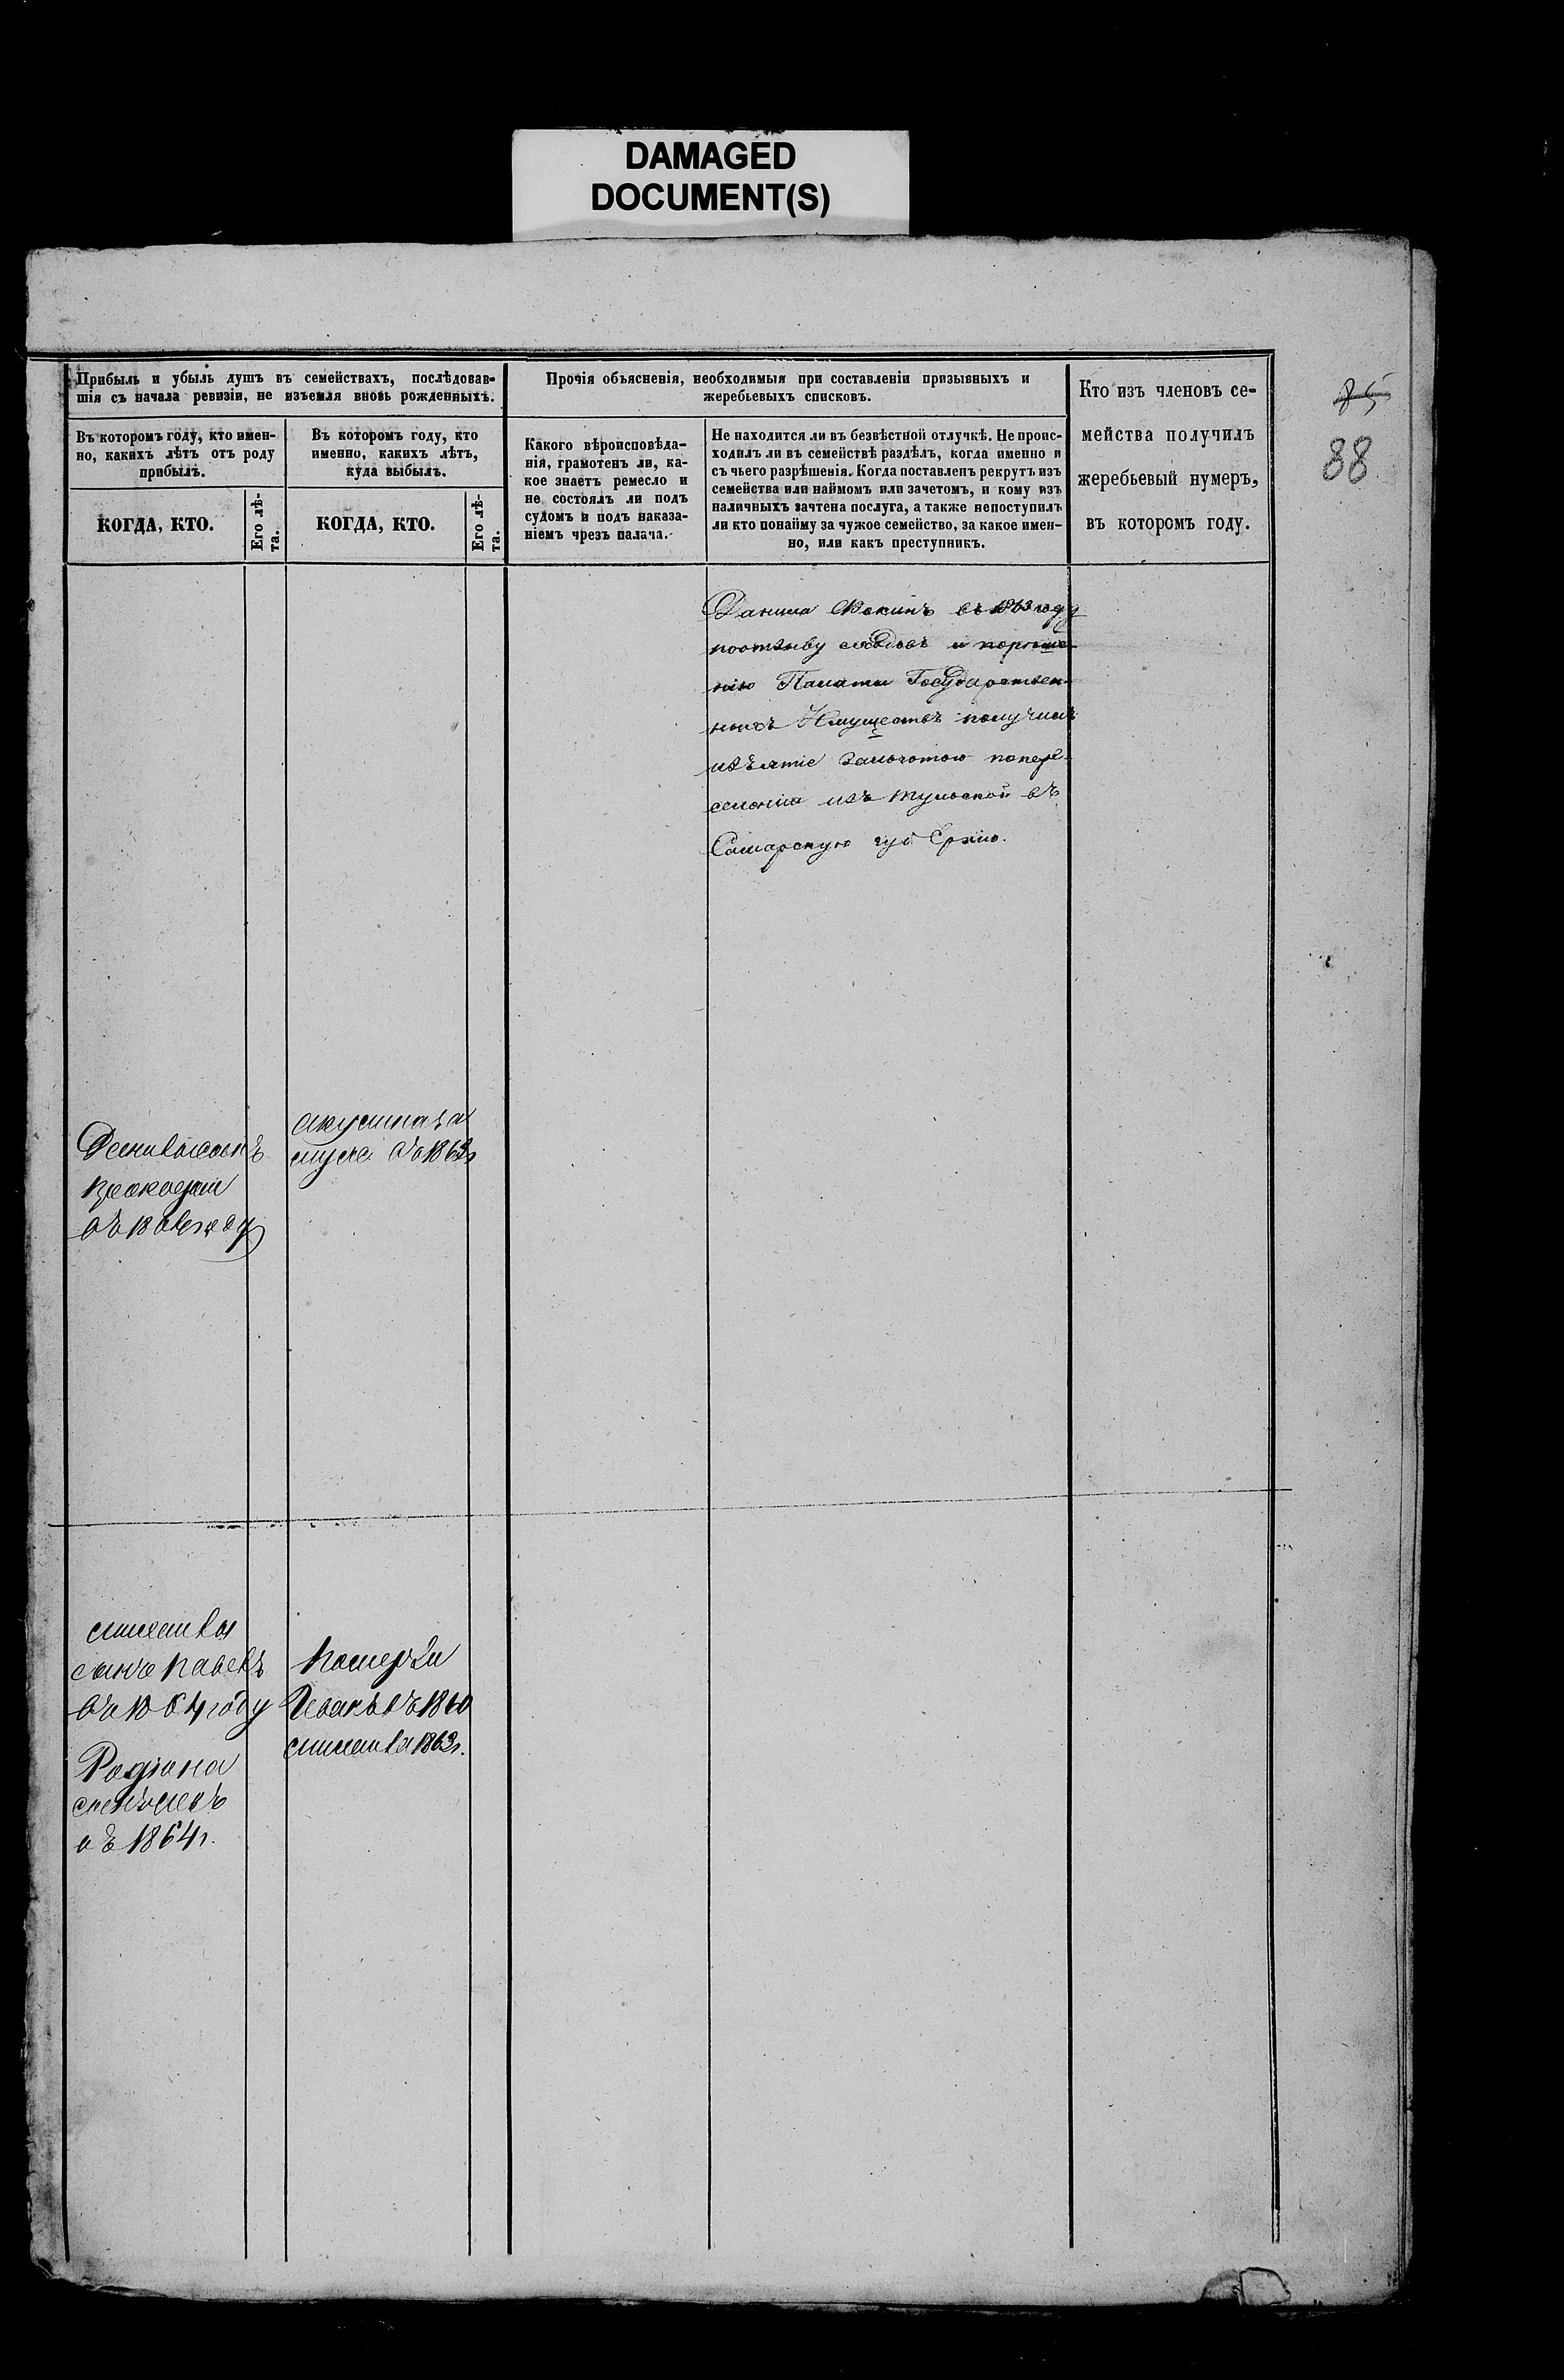 DAMAGED
DOCUMENT(S)
Прибыль и убыль душъ въ семействахъ, послѣдовав-
шія съ начала ревизіи, не изъемля вновь рожденныхъ.
Прочія объясненія, необходимыя при составленіи призывныхъ и
жеребьевыхъ списковъ.
Кто изъ членовъ се-
мейства получилъ
жеребьевый нумеръ,
въ которомъ году.
85
88
Въ которомъ году, кто имен-
но, какихъ лѣтъ отъ роду
прибылъ.
Въ которомъ году, кто
именно, какихъ лѣтъ,
куда выбылъ.
Какого вѣроисповѣда-
нія, грамотенъ ли, ка-
кое знаетъ ремесло и
не состоялъ ли подъ
судомъ и подъ наказа-
ніемъ чрезъ палача.
Не находится ли въ безвѣстной отлучкѣ. Не проис-
ходилъ ли въ семействѣ раздѣлъ, когда именно и
съ чьего разрѣшенія. Когда поставленъ рекрутъ изъ
семейства или наймомъ или зачетомъ, и кому изъ
наличныхъ зачтена послуга, а также непоступилъ
ли кто понайму за чужое семейство, за какое имен-
но, или какъ преступникъ.
КОГДА, КТО.
Его лѣ-
та.
КОГДА, КТО.
Его лѣ-
та.
Данила въ 1863 году
поотзыву и порѣше-
нію Палаты Государствен-
ныхъ Имуществъ получилъ
изъятіе попере-
селенію изъ Тульской въ
Самарскую губернію.
1863г
въ году
сынъ Павелъ
въ 1864 году
Родіона
въ 1864г.
Померли
въ 1860
1863г.